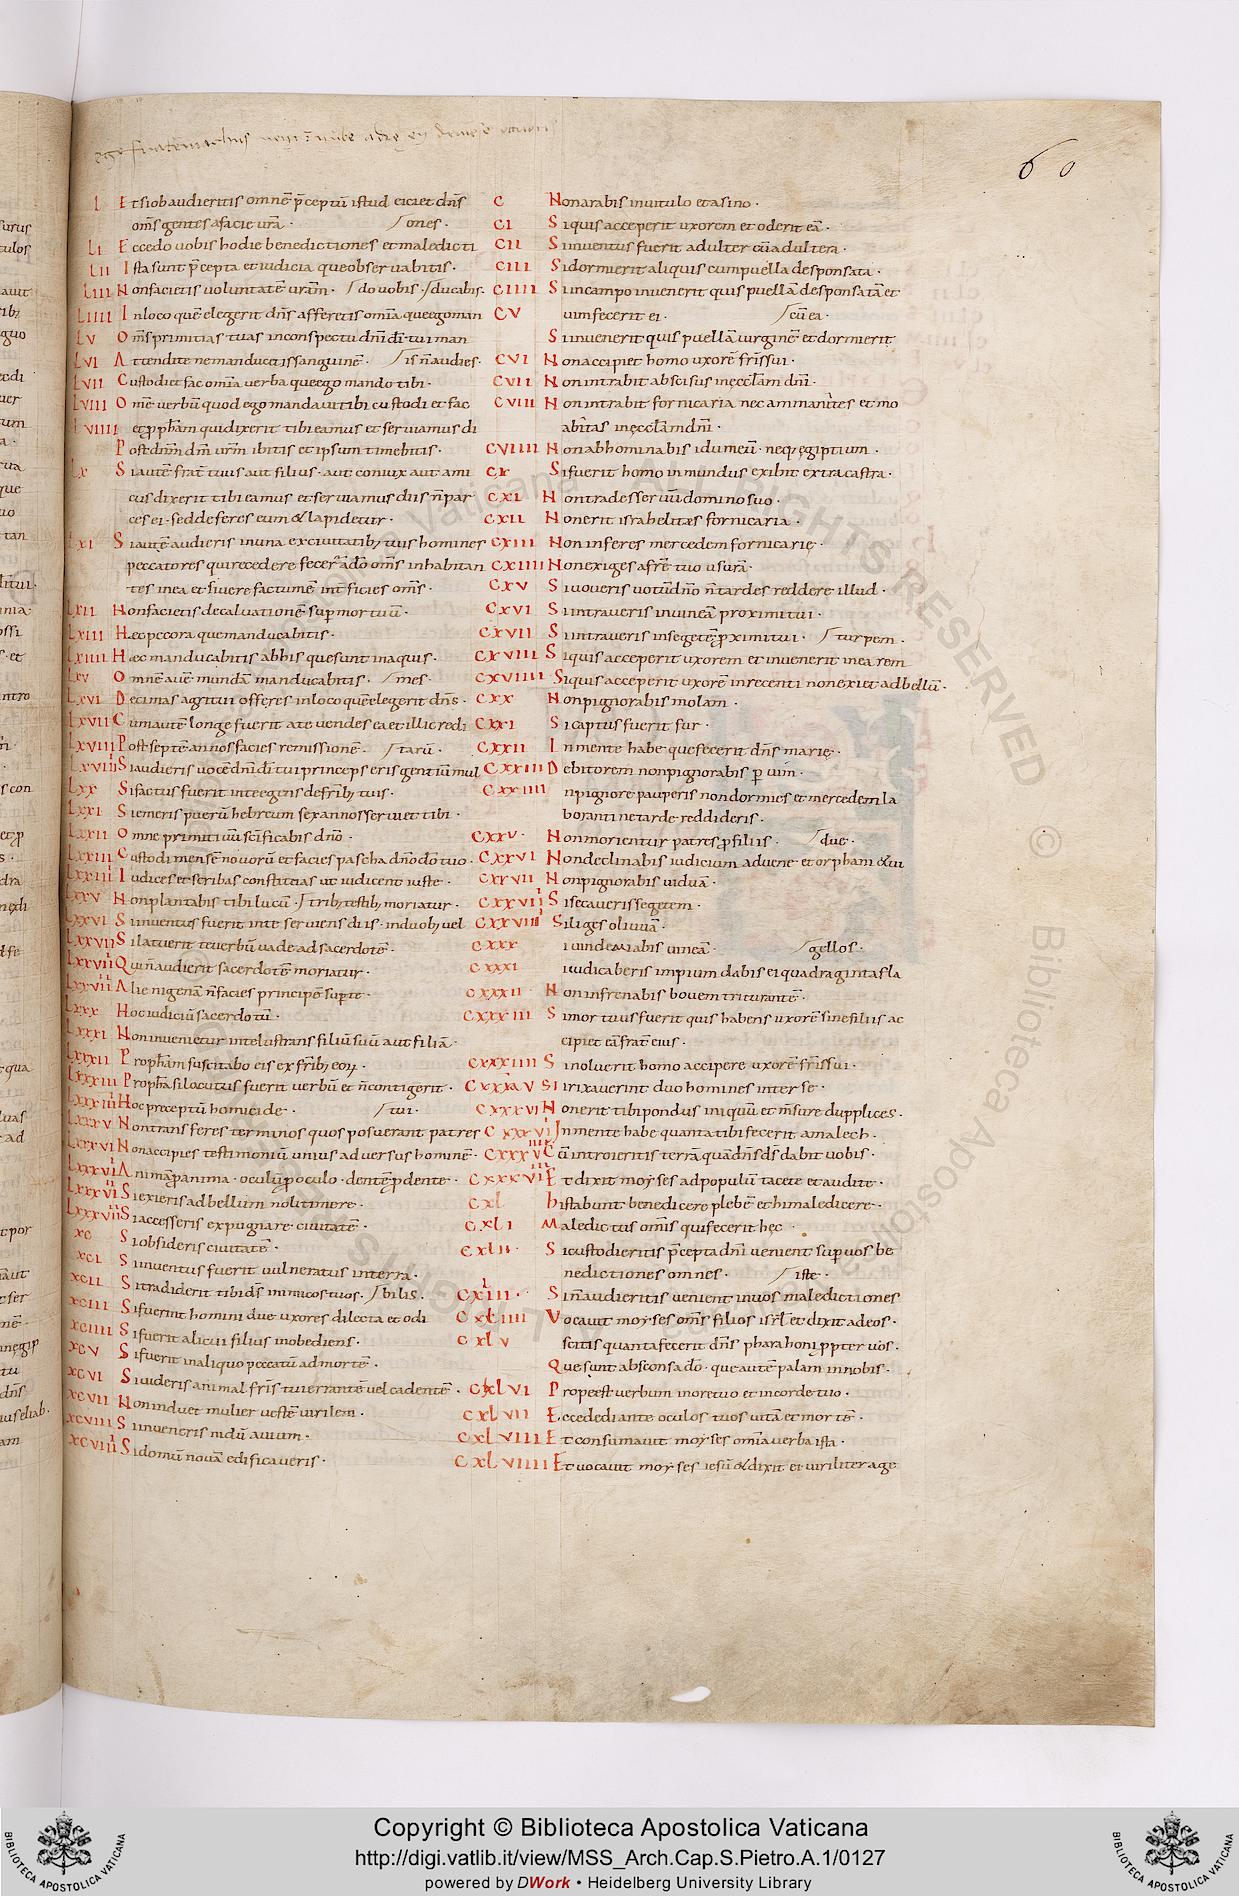 60
L Et si ob audieritis omnē p̄ceptū istud eiciet dn̄s
om̄s gentes a facie ur̄a · ones ·
LI Ecce do uobis hodie benedictiones et maledicti
LII Ista sunt p̄cepta et iudicia que obseruabitis ·
LIII Non facietis voluntatē ur̄am · do vobis · ducabis ·
LIIII In loco quē elegerit dn̄s afferetis om̄ia que ego man
LV Om̄s primitias tuas in conspectu dn̄i dī tui man
LVI Attendite ne manducetis sanguinē · is n̄ audies ·
LVII Custodi et fac om̄ia verba que ego mando tibi ·
LVIII Om̄e verbū quod ego mandaui tibi custodi et fac
LVIIII et p̱ph̄am qui dixerit tibi eamus et seruiamus di
Post dn̄m dm̄ ur̄m ibitis et ipsum timebitis ·
LX Si autē frat̄ tuus aut filius · aut coniux aut ami
cus dixerit tibi eamus et seruiamus diis n̄ par
ces ei · sed deferes eum & lapidetur ·
LXI Si autē audieris in una ex ciuitatib; tuis homines
peccatores qui recedere fecer̄ a do om̄s inhabitan
tes in ea et si uere factum ē int̄ficies om̄s ·
LXII Non facietis decaluationē sup̱ mortuū ·
LXIII Hec peccora que manducabitis ·
LXIIII Hæc manducabitis ab his que sunt in aquis ·
LXV Omnē auē mundā manducabitis · mes ·
LXVI Decimas agri tui offeres in loco quē elegerit dn̄s ·
LXVII Cum autē longe fuerit a te vendes ea et illic redi
LXVIII Post septē annos facies remissionē · tarū ·
LXVIIII Si audieris uocē dn̄i dī tui princeps eris gentiū mul
LXX Si factus fuerit in te egens de frib; tuis ·
LXXI Si emeris puerū hebreum sex annos seruiet tibi ·
LXXII Omne primitiuū sc̄ificabis dn̄o ·
LXXIII Custodi mensē novorū et facies pascha dn̄o dō tuo ·
LXXIIII Iudices et scribas constituas ut iudicent iuste ·
LXXV Non plantabis tibi lucū · trib; testib; moriatur ·
LXXVI Si inuentus fuerit int̄ te seruiens diis · in duob; vel
LXXVII Si latuerit te uerbū uade ad sacerdotē ·
LXXVIII Qui n̄ audierit sacerdotē moriatur ·
LXXVIIII Alienigenam n̄ facies principē sup̱ te ·
LXXX Hoc iudiciū sacerdotū ·
LXXXI Non inuenietur in te lustrans filiū suū aut filiā ·
LXXXII Proph̄am suscitabo eis ex frib; eoꝝ ·
LXXXIII Proph̄a si locutus fuerit verbū et n̄ contigerit ·
LXXXIIII Hoc preceptū homicide · tui ·
LXXXV Non transferes terminos quos posuerant patres
LXXXVI Non accipies testimoniū unius aduersus hominē ·
LXXXVII Animā p̱ anima · oculū p̱ oculo · dentē p̱ dente ·
LXXXVIII Si exieris ad bellum noli timere ·
LXXXVIIII Si accesseris expugnare ciuitatē ·
XC Si obsideris ciuitatē ·
XCI Si inuentus fuerit uulneratus in terra ·
XCII Si tradiderit tibi ds̄ inimicos tuos · bilis ·
XCIII Si fuerint homini due uxores dilecta et odi
XCIIII Si fuerit alicui filius inobediens ·
XCV Si fuerit in aliquo peccatū ad mortē ·
XCVI Si uideris animal fr̄is tui errantē vel cadentē ·
XCVII Non induet mulier uestē virilem ·
XCVIII Si inueneris nidū auium ·
XCVIIII Si domū nouā edificaueris ·
C Non arabis in uitulo et asino ·
CI Si quis acceperit uxorem et oderit eā ·
CII Si inuentus fuerit adulter cū adultera ·
CIII Si dormierit aliquis cum puella desponsata ·
CIIII Si in campo inuenerit quis puellā desponsatā et
CV uim fecerit ei · cū ea ·
Si inuenerit quis puellā uirginē et dormierit
CVI Non accipiet homo uxorē fr̄is sui ·
CVII Non intrabit abscisus in ęccl̄am dn̄i ·
CVIII Non intrabit fornicaria nec ammanites et mo
abitas in ęccl̄am dn̄i ·
CVIIII Non abhominabis idumeū · neq; ęgiptium ·
CX Si fuerit homo inmundus exibit extra castra ·
CXI Non trades seruū domino suo ·
CXII Non erit israhelitas fornicaria ·
CXIII Non inferes mercedem fornicarię ·
CXIIII Non exiges a fr̄e tuo usurā ·
CXV Si uoueris uotū dn̄o n̄ tardes reddere illud ·
CXVI Si intraueris in uineā proximi tui ·
CXVII Si intraueris in segetē p̱ximi tui · turpem ·
CXVIII Si quis acceperit uxorem et inuenerit in ea rem
CXVIIII Si quis acceperit uxorē in recenti non exiet ad bellū ·
CXX Non pignorabis molam ·
CXXI Si captus fuerit fur ·
CXXII In mente habe que fecerit dn̄s marię ·
CXXIII Debitorem non pignorabis p̱ uim ·
CXXIIII n pignore pauperis non dormies et mercedem la
boranti ne tarde reddideris ·
CXXV Non morientur patres p̱ filiis · due ·
CXXVI Non declinabis iudicium aduene et orphani & ui
CXXVII Non pignorabis uiduā ·
CXXVIII Si secaueris segetem ·
CXXVIIII Si liges oliuuā ·
CXXX i uindemiabis uineā · gellos ·
CXXXI i iudicaberis impium dabis ei quadraginta fla
CXXXII Non infrenabis bovem triturantē ·
CXXXIII Si mortuus fuerit quis habens uxorē sine filiis ac
cipiet eā frat̄ eius ·
CXXXIIII Si noluerit homo accipere uxorē fr̄is sui ·
CXXXV Si rixauerint duo homines inter se ·
CXXXVI Non erit tibi pondus iniquū et m̄sure dupplices ·
CXXXVII In mente habe quanta tibi fecerit amalech ·
CXXXVIII Cū introieritis terrā quā dn̄s ds̄ dabit uobis ·
CXXXVIIII Et dixit moyses ad populū tacete et audite ·
CXL hi stabunt benedicere plebē et hi maledicere ·
CXLI Maledictus om̄is qui fecerit hęc ·
CXLII Si custodieritis p̄cepta dn̄i venient sup̱ uos be
nedictiones omnes · iste ·
CXLIII Si n̄ audieritis uenient in uos maledictiones
CXLIIII Vocauit moyses om̄s filios isrl̄ et dixit ad eos ·
CXLV scitis quanta fecerit dn̄s pharahoni p̱pter uos ·
Que sunt absconsa do · que autē palam in nobis ·
CXLVI Prope est uerbum in ore tuo et in corde tuo ·
CXLVII Ecce dedi ante oculos tuos uitā et mortē ·
CXLVIII Et consumauit moyses om̄ia verba ista ·
CXLVIIII Et uocauit moyses iesū & dixit ei uiriliter age
Copyright © Biblioteca Apostolica Vaticana
http://digi.vatlib.it/view/MSS_Arch.Cap.S.Pietro.A.1/0127
powered by DWork • Heidelberg University Library